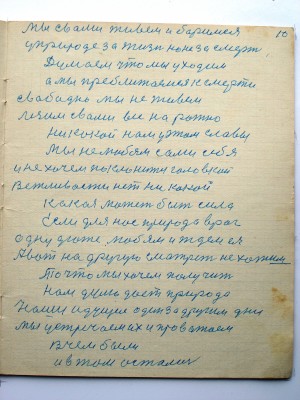 10
Мы свами живем и баримся
у природе за жизн коне за смерт.
Думаем что мы уходим
а мы преближаемся к смерти
свабодно мы не живем
лезим свами все на рожно
никокой нам у этом славы
Мы не любям сами себя
и не хочем поклонити головкий
Вежливасти нет ни какой
Какая может быт сила
Если для нас природа враг
одну драже любям и ждем ея
А вот на другую сматрит не хотим
То что мы хочем получит
Нам дает природа
Наши идущие один за другим дни
мы устречаем их и проважаем
В чем были
и в том остались